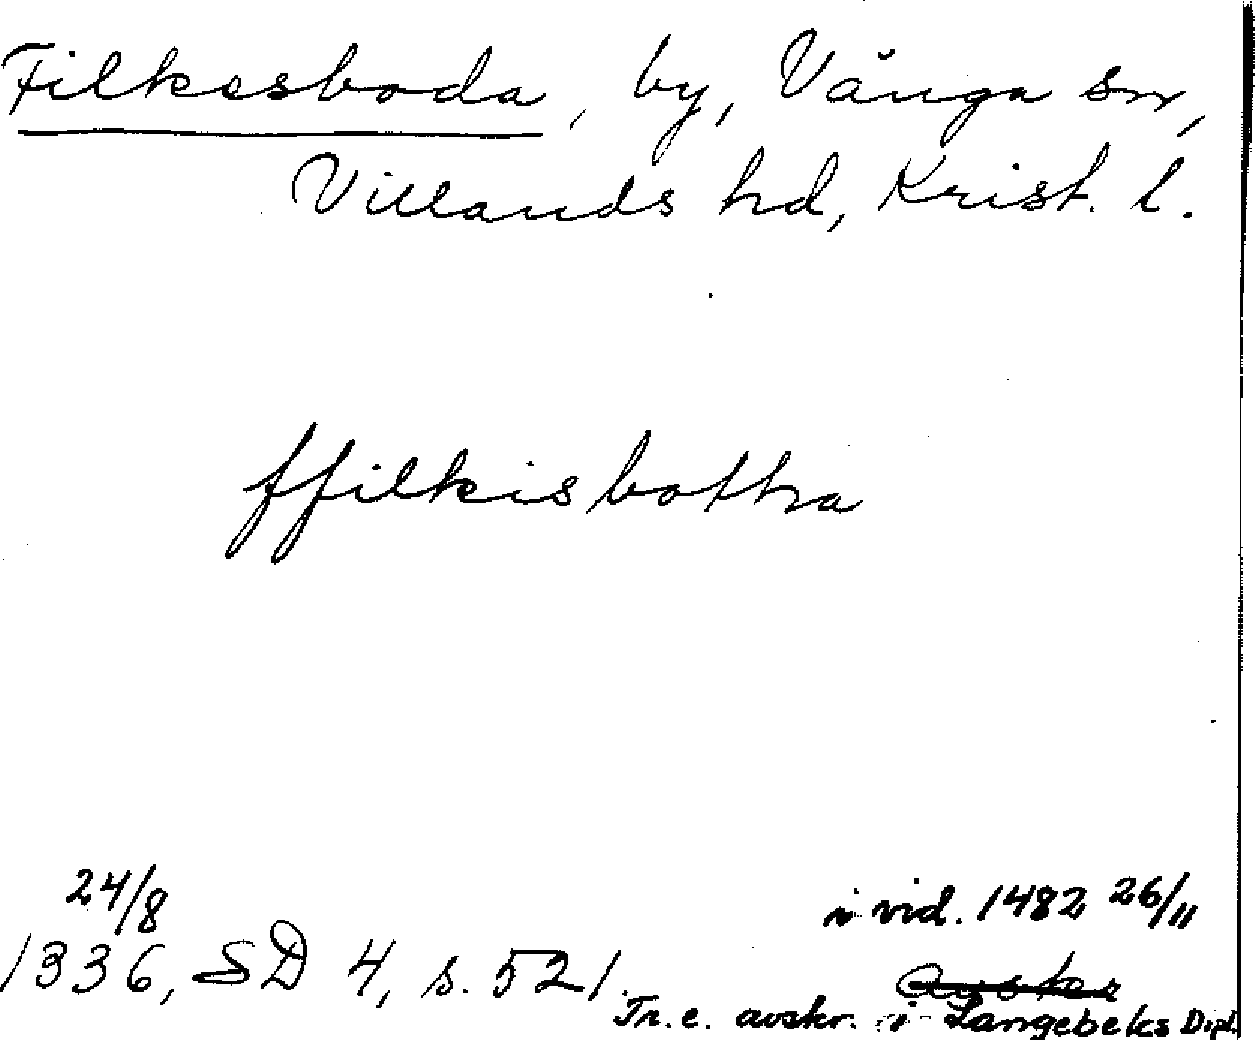 Filkesboda, by, Vånga sn,
Villands hd, Krist. l.
ffilkisbotha
24/8
1336, SD 4, s. 521.
i vid. 1482 26/11
Tr. e. avskr. i Langebeks Dipl.